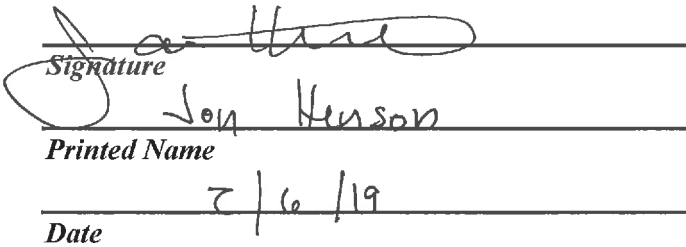 Signature
Jon Henson
Printed Name
2/6/19
Date